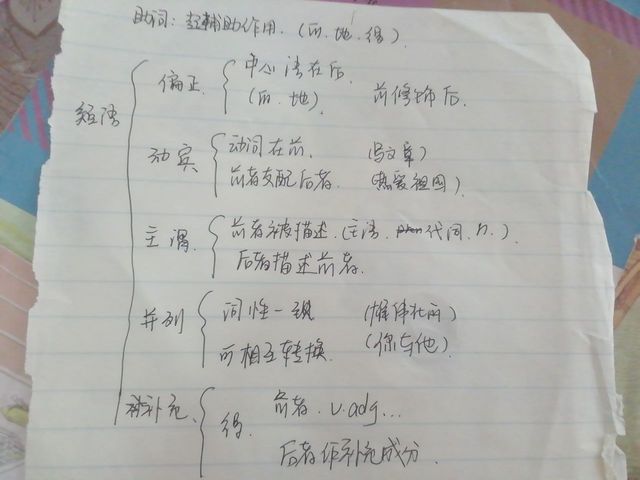 助词：起辅助作用.（的.地.得）.
短语
偏正. 中心语在后.
（的.地） 前修饰后.
动宾 动词在前. （写文章）
前者支配后者. （热爱祖国）.
主谓. 前者被描述.（主语. 代词. n.）
后者描述前者.
并列 词性一致 （雄伟壮丽）
可相互转换. （你与他）
补充. 得. 前者. v.adj...
后者作补充成分.